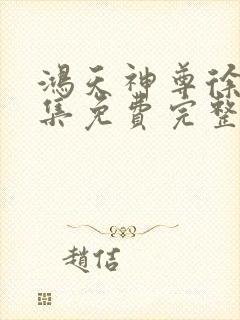 鴻天神尊徐
集免費完整
趙佶